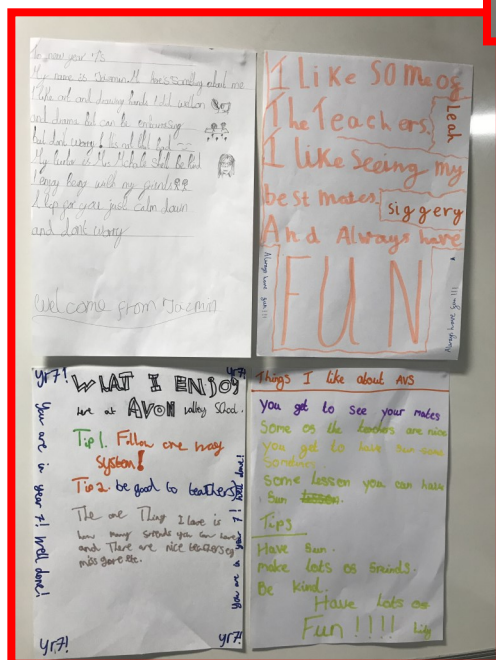 To new year 7s
My name is
I like art and drawing
and drama but can be embarrising
but dont worry its not that bad
My tutor is Mrs
I enjoy being with my
for you just calm down
and dont worry
Welcome from
I Like SOMe OF
The Teachers.
Leah
I like Seeing my
best mates.
siggery
And Always have
FUN
Always have fun!!!
Always have fun!!!
yr7!
yr7!
WHAT I ENJOY
here at AVON valley School.
Tip 1. Follow one way
System!
Tip 2. be good to teathers
The one Thing I love is
how many friends you can have
and There are nice teathers eg
miss gore etc.
You are in year 7! Well done!
You are in year 7! Well done!
yr7!
yr7!
Things I like about AVS
You get to see your mates
Some of the teachers are nice
you get to have fun
Sometimes.
Some lesson you can have
fun lesson.
Tips
Have fun.
make lots of freinds.
Be kind.
Have Lots of
Fun!!!!
Lily